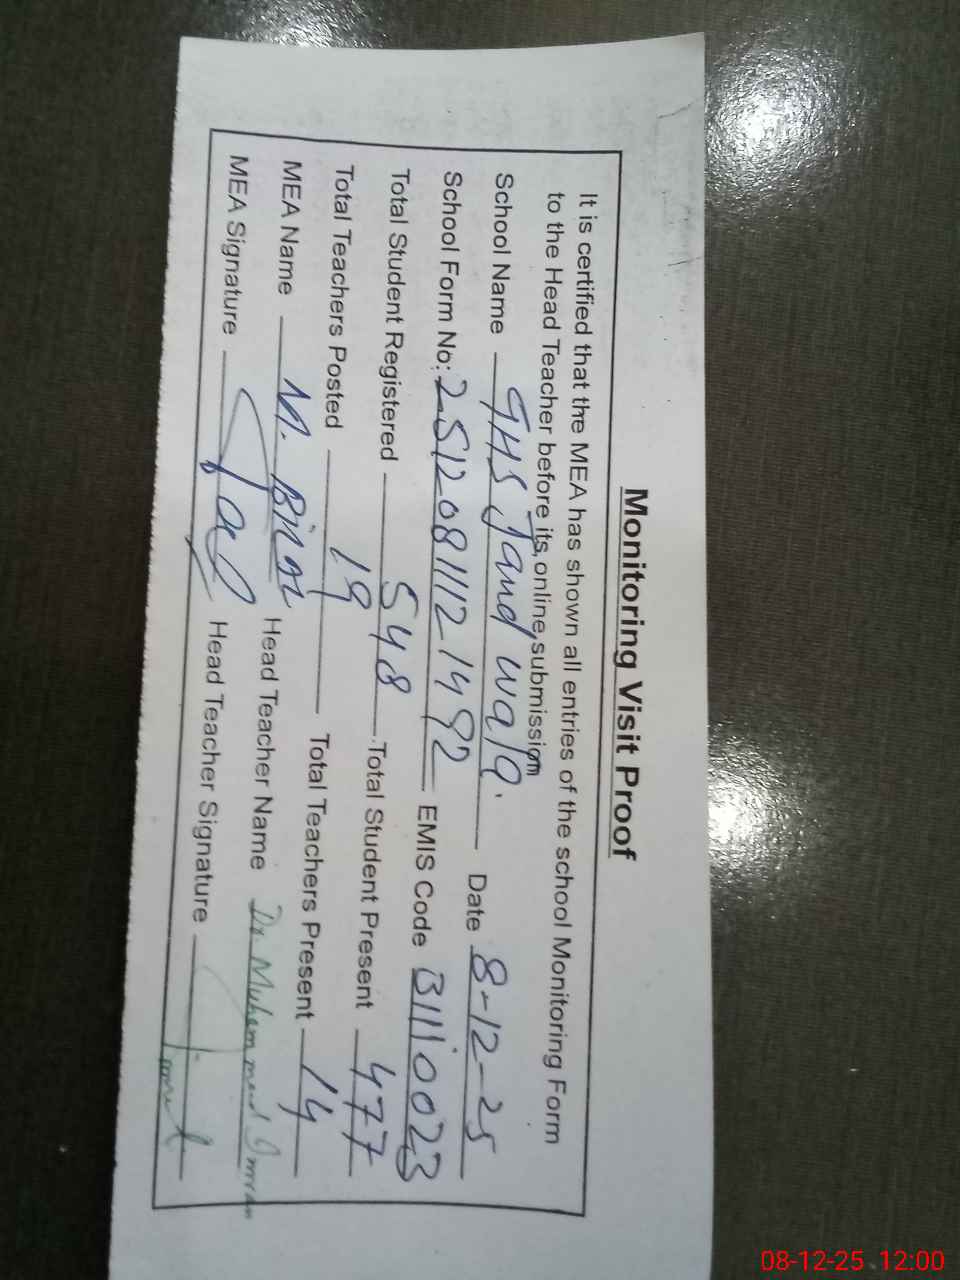 Monitoring Visit Proof
It is certified that the MEA has shown all entries of the school Monitoring Form
to the Head Teacher before its online submission
School Name GHS Jand wala. Date 8-12-25
School Form No: 2512081112 1492 EMIS Code 31110023
Total Student Registered 548 Total Student Present 477
Total Teachers Posted 19 Total Teachers Present 14
MEA Name M. Bilal Head Teacher Name Dr. Muhammad Imran
MEA Signature Head Teacher Signature
08-12-25 12:00